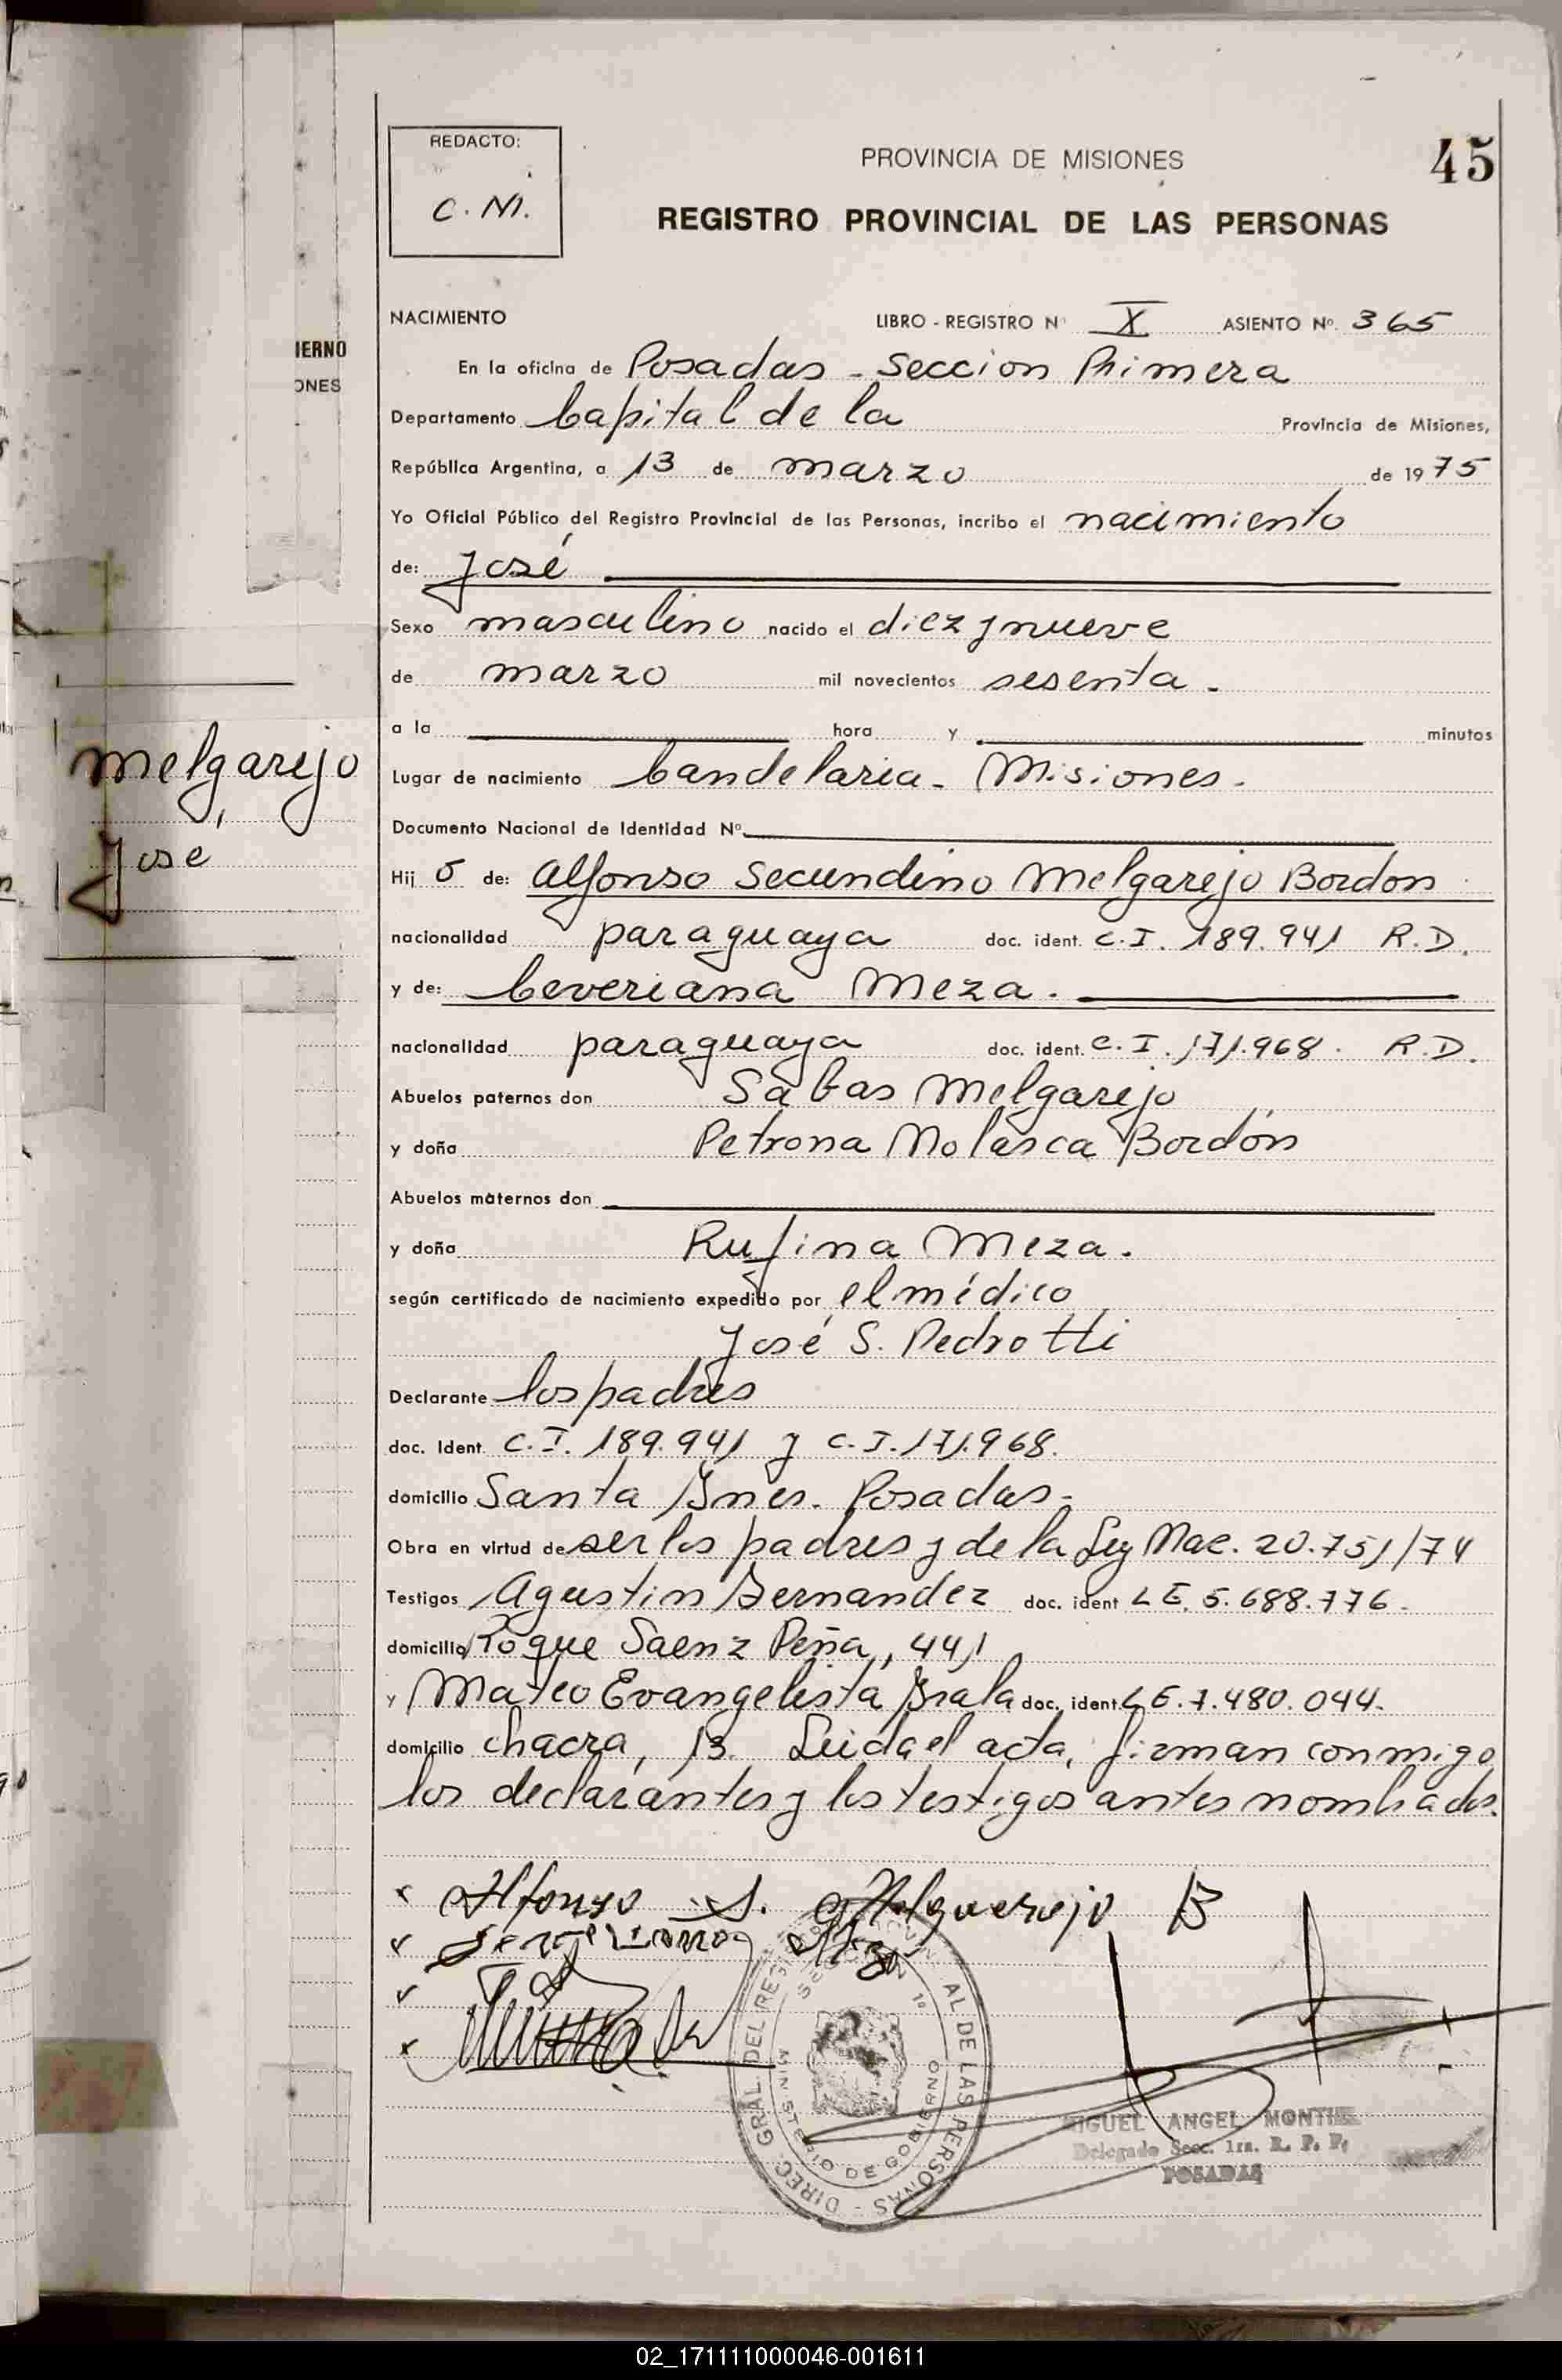 45
REDACTO:
C. M.
PROVINCIA DE MISIONES
REGISTRO PROVINCIAL DE LAS PERSONAS
NACIMIENTO LIBRO - REGISTRO Nº X ASIENTO Nº 365
En la oficina de Posadas - Seccion Primera
Departamento Capital de la Provincia de Misiones,
República Argentina, a 13 de marzo de 1975
Yo Oficial Público del Registro Provincial de las Personas, incribo el nacimiento
de: José
Sexo masculino nacido el diez y nueve
de marzo mil novecientos sesenta.
a la hora y minutos
Lugar de nacimiento Candelaria - Misiones.
Documento Nacional de Identidad Nº
Hij o de: Alfonso Secundino Melgarejo Bordon
nacionalidad paraguaya doc. ident. C.I. 189.941 R.D.
y de: Ceveriana Meza.
nacionalidad paraguaya doc. ident. C.I. 171.968. R.D.
Abuelos paternos don Sabas Melgarejo
y doña Petrona Nolasca Bordón
Abuelos maternos don
y doña Rufina Meza.
según certificado de nacimiento expedido por el médico
José S. Pedrotti
Declarante los padres
doc. Ident. C.I. 189.941 y C.I. 171.968.
domicilio Santa Ines. Posadas.
Obra en virtud de ser los padres y de la Ley Nac. 20.751/74
Testigos Agustin Bernandez doc. ident L E. 5.688.776.
domicilio Roque Saenz Peña, 441
y Mateo Evangelista Irala doc. ident. L E. 7.480.044.
domicilio chacra, 13. Leida el acta, firman conmigo
los declarantes y los testigos antes nombrados.
Alfonso S. Melguerejo B
DIREC. GRAL. DEL REGISTRO PROVINCIAL DE LAS PERSONAS
SECCION 1º
MINISTERIO DE GOBIERNO
MIGUEL ANGEL MONTIEL
Delegado Secc. 1ra. R. P. P.
POSADAS
IERNO
ONES
Melgarejo,
Jose
02_171111000046-001611